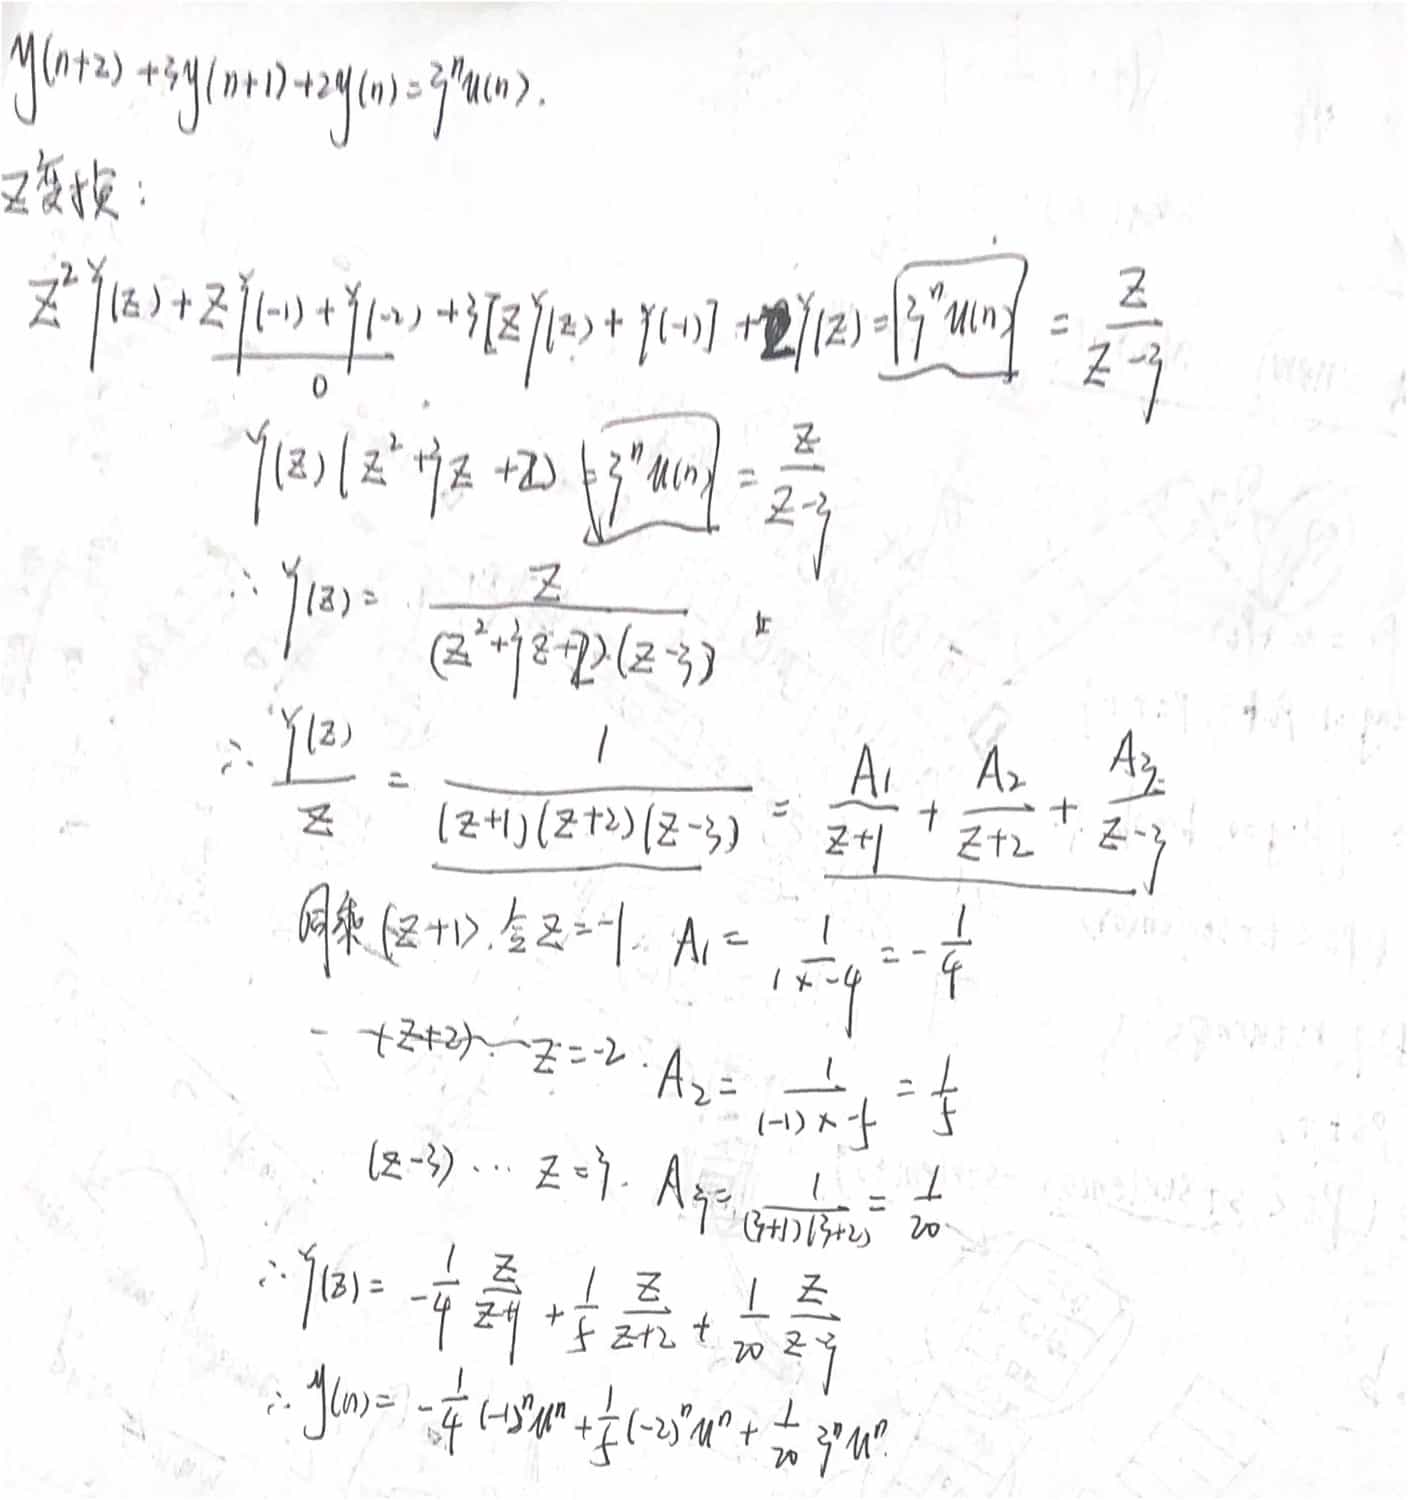 y(n+2)+3y(n+1)+2y(n)=3ⁿu(n).
Z变换:
Z²Y(z)+ZY(-1)+Y(-2)+3[ZY(z)+Y(-1)]+2Y(z)=3ⁿu(n) = Z/(Z-3)
0
Y(z)(z²+3z+2)=3ⁿu(n) = Z/(Z-3)
∴ Y(z)= Z/((z²+3z+2)(z-3))
∴ Y(z)/Z = 1/((z+1)(z+2)(z-3)) = A₁/(z+1) + A₂/(z+2) + A₃/(z-3)
同乘(z+1),令z=-1. A₁= 1/(1×-4) = -1/4
(z+2) z=-2. A₂= 1/((-1)×-5) = 1/5
(z-3)... z=3. A₃= 1/((3+1)(3+2)) = 1/20
∴ Y(z)= -1/4 z/(z+1) + 1/5 z/(z+2) + 1/20 z/(z-3)
∴ y(n)= -1/4 (-1)ⁿuⁿ + 1/5 (-2)ⁿuⁿ + 1/20 3ⁿuⁿ.